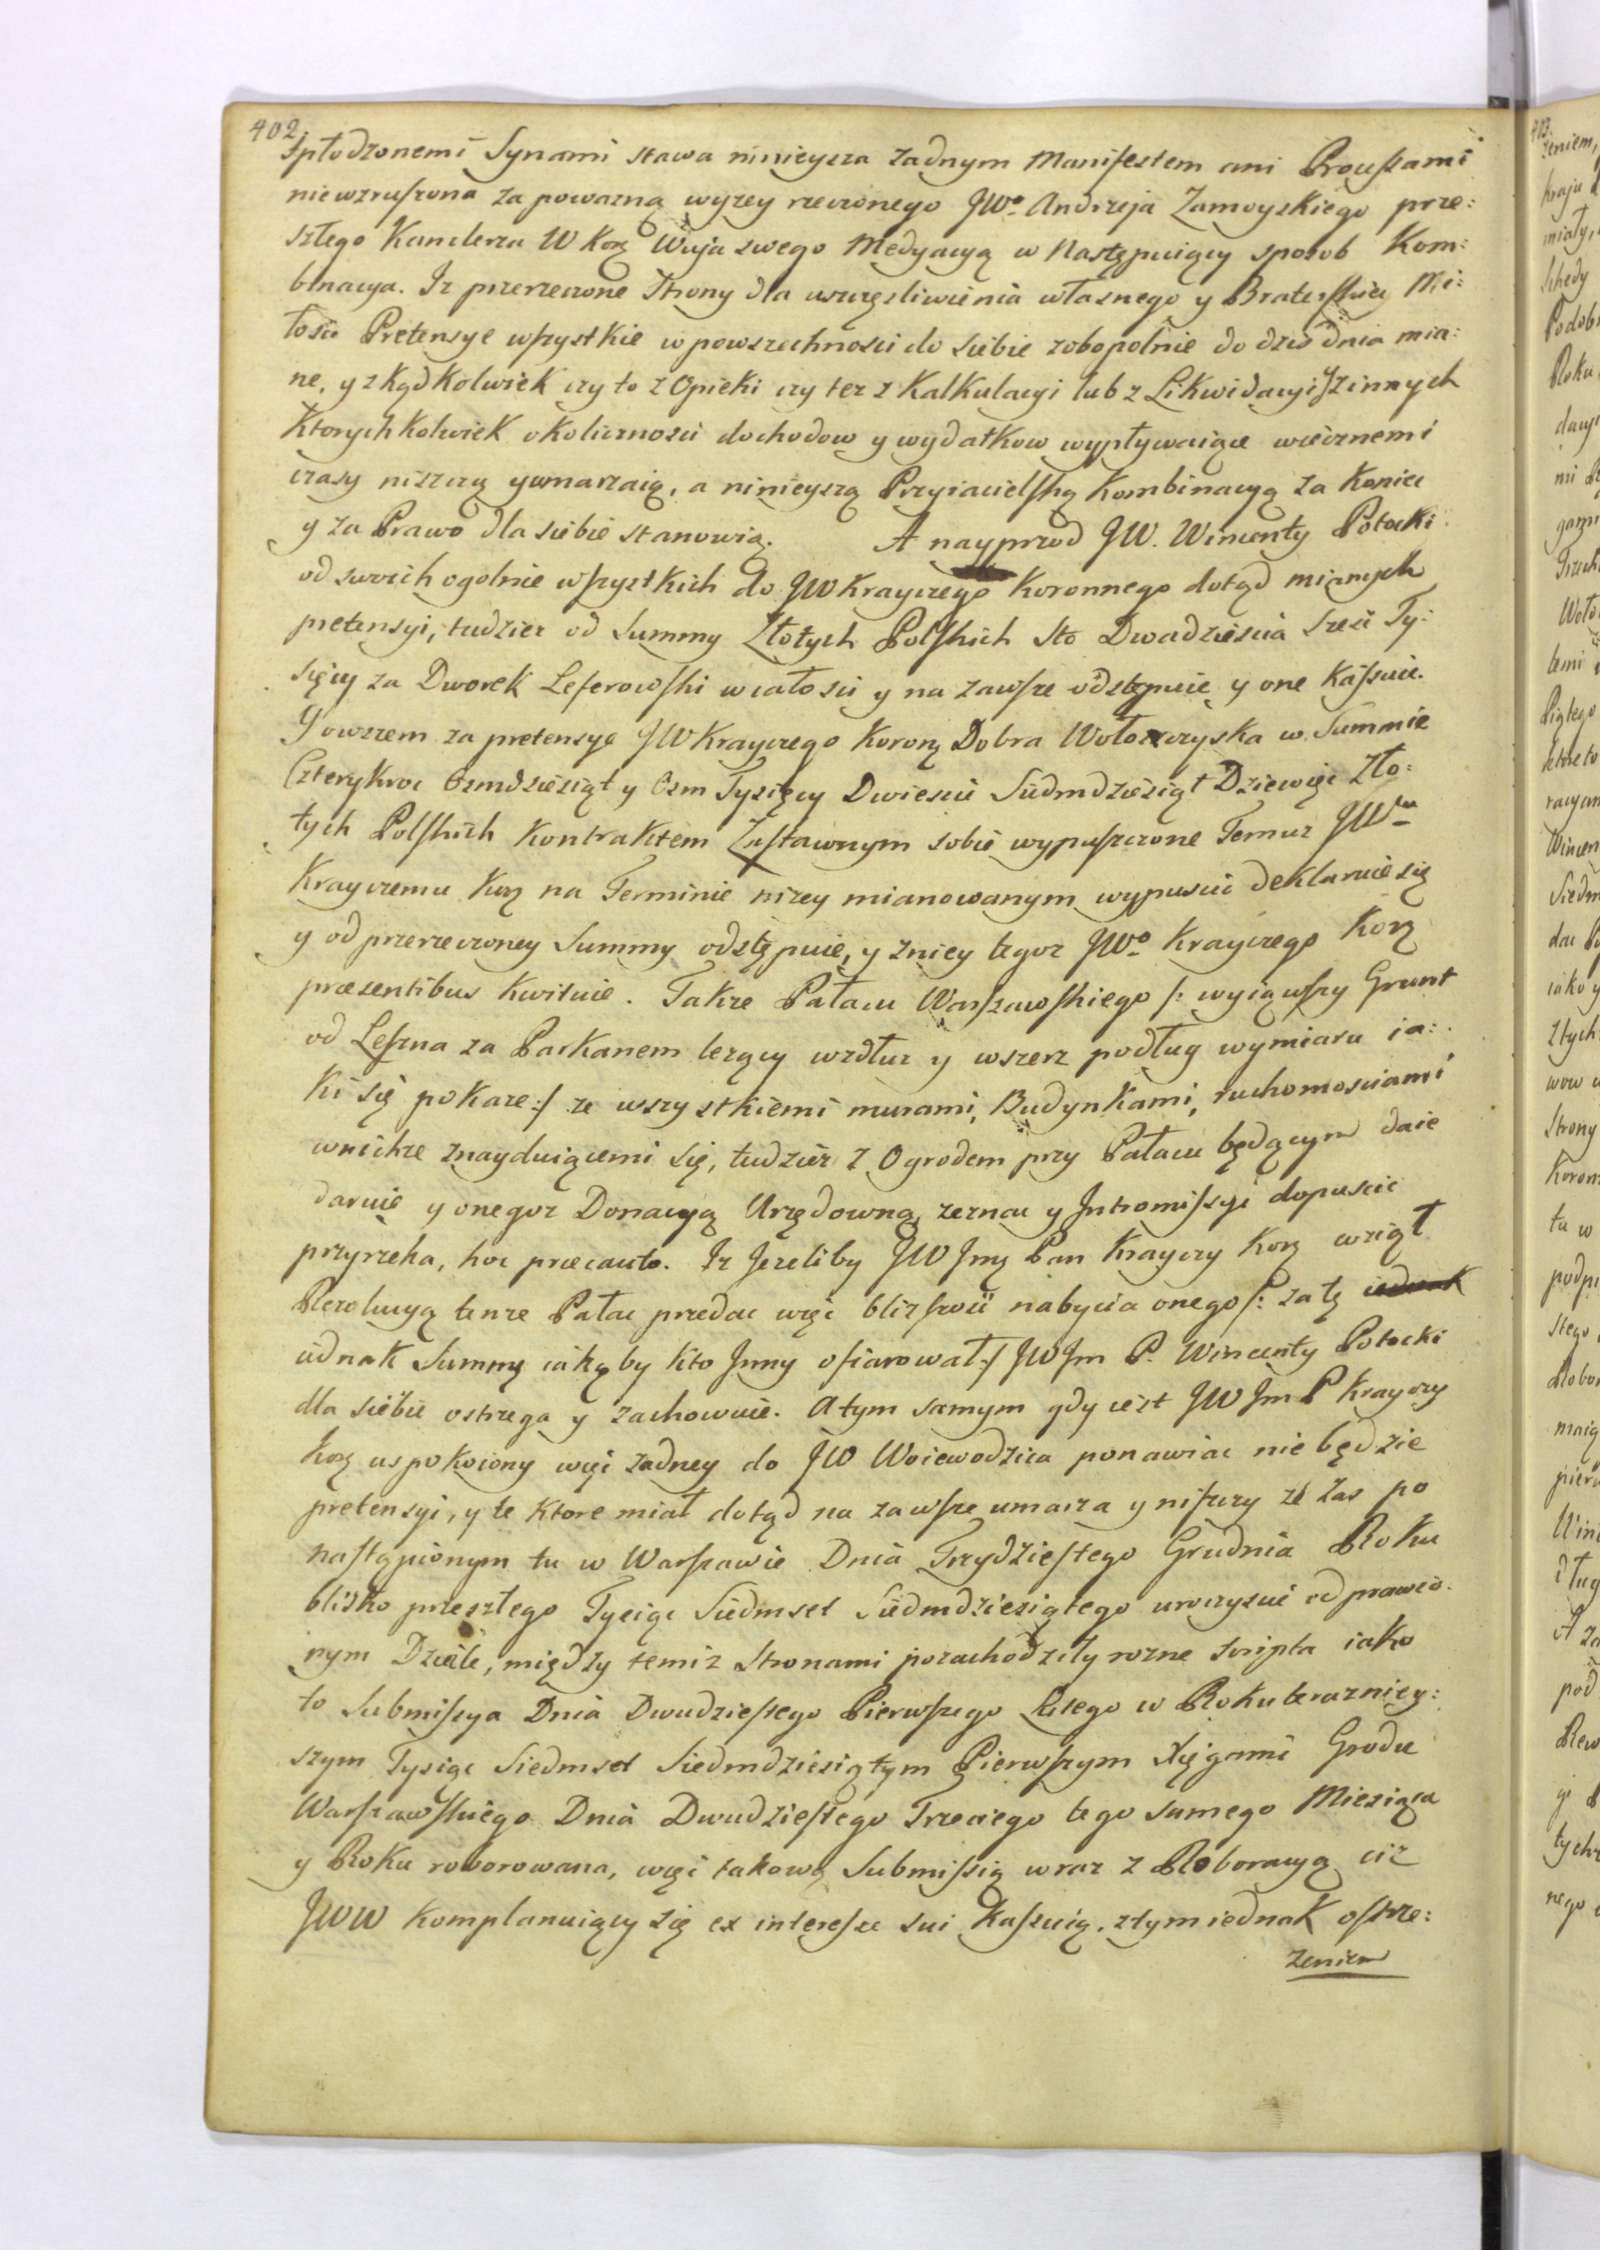 402
spłodzonemi Synami stawa ninieysza żadnym Manifestem ani Processami
niewzruszona za powazną wyżey rzeczonego JWo Andrzeja Zamoyskiego prze:
szłego Kanclerza W Korz Wuja swego Medyacyą w Następuiący sposob Kom:
binacya. Iz przerzeczone Strony dla uszczęsliwienia własnego y Braterskiey Mi:
łosci Pretensye wszystkie w powszechnosci do siebie zobopolnie do dzis dnia mia:
ne, y zkąd kolwiek czy to z Opieki czy tez z Kalkulacyi lub z Likwidacyi y z innych
Ktorychkolwiek okolicznosci dochodow y wydatkow wypływaiące wiecznemi
czasy niszczą y umarzaią, a ninieyszą Przyiacielską Kombinacyą za Koniec
y za Prawo dla siebie stanowią. A nayprzod JW. Wincenty Potocki
od swoich ogolnie wszystkich do JW Krayczego Koronnego dotąd mianych
pretensyi, tudziez od Summy Złotych Polskich Sto Dwadziescia Szesc Ty:
sięcy za Dworek Leserowski w całosci y na zawsze odstępuie y one Kassuie.
Y owszem za pretensye JW Krayczego Koron Dobra Wołoczyska w Summie
Czterykroc Osmdziesiąt y Osm Tysięcy Dwiescie Siedmdziesiąt Dziewięc Zło:
tych Polskich Kontraktem Zastawnym sobie wypuszczone Temuz JWu
Krayczemu Korz na Terminie nizey mianowanym wypuscic deklaruie się
y od przerzeczoney Summy odstępuie, y zniey tegoz JWo Krayczego Korz
praesentibus Kwituie. Takze Pałacu Warszawskiego /: wyiąwszy Grunt
od Leszna za Parkanem lezący wzdłuz y wszerz podług wymiaru ia:
ki się pokaze :/ ze wszystkiemi murami, Budynkami, ruchomosciami
wnichze znayduiącemi się, tudziez z Ogrodem przy Pałacu będącym daie
daruie y onegoz Donacyą Urzędowną zeznac y Intromissyi dopuscic
przyrzeka, hoc praecauto. Iz Jezeliby JW Jmę Pan Krayczy Korz wziął
Rezolucyą tenze Pałac przedac więc blizszosc nabycia onego /: za tę
iednak Summę iakąby kto Inny ofiarował :/ JW Jm P. Wincenty Potocki
dla siebie ostrzega y zachowuie. A tym samym gdy iest JW Jm P Krayczy
Korz uspokoiony więc żadney do JW Woiewodzica ponawiac nie będzie
pretensyi, y te ktore miał dotąd na zawsze umarza y niszczy ze zas po
nastąpionym tu w Warszawie Dnia Trzydziestego Grudnia Roku
blisko przeszłego Tysiąc Siedmset Siedmdziesiątego uroczyscie odprawio:
nym Dziale, między temiz Stronami pozachodziły rozne scripta iako
to Submissya Dnia Dwudziestego Pierwszego Lutego w Roku teraznie:
szym Tysiąc Siedmset Siedmdziesiątym Pierwszym Xięgami Grodu
Warszawskiego Dnia Dwudziestego Trzeciego tego samego Miesiąca
y Roku roborowana, więc takową Submissią wraz z Roboracyą ciż
JWW Komplanuiący się ex interesse sui Kassuią, ztym iednak ostrze:
żeniem